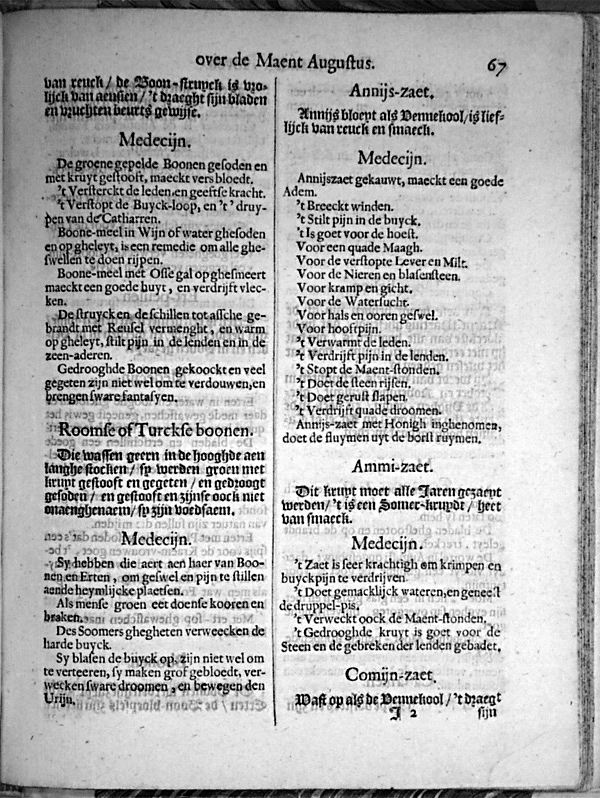 over de Maent Augustus. 67
van reuck / de Boon-struyck is vro-
lijck van aensien / 't draeght sijn bladen
en vruchten beurts gewijse.
Medecijn.
De groene gepelde Boonen gesoden en
met kruyt gestooft, maeckt vers bloedt.
't Versterckt de leden, en geeftse kracht.
't Verstopt de Buyck-loop, en 't' druy-
pen van de Catharren.
Boone-meel in Wijn of water ghesoden
en op gheleyt, is een remedie om alle ghe-
swellen te doen rijpen.
Boone-meel met Osse gal op ghesmeert
maeckt een goede huyt, en verdrijft vlec-
ken.
De struycken, de schillen tot assche ge-
brandt met Reusel vermenght, en warm
op gheleyt, stilt pijn in de lenden en in de
zeen-aderen.
Gedrooghde Boonen gekoockt en veel
gegeten zijn niet wel om te verdouwen, en
brengen sware fantasyen.
Roomse of Turckse boonen.
Die wassen geern in de hooghde aen
langhe stocken / sy werden groen met
kruyt gestooft en gegeten / en gedroogt
gesoden / en gestooft en zijnse oock niet
onaenghenaem / sy zijn voedsaem.
Medecijn.
Sy hebben die aert aen haer van Boo-
nen en Erten, om geswel en pijn te stillen
aende heymlijcke plaetsen.
Als mense groen eet doense kooren en
braken.
Des Soomers ghegheten verweecken de
harde buyck.
Sy blasen de buyck op, zijn niet wel om
te verteeren, sy maken grof gebloedt, ver-
wecken sware droomen, en bewegen den
Urijn.
Annijs-zaet.
Annijs bloeyt als Vennekool / is lief-
lijck van reuck en smaeck.
Medecijn.
Annijszaet gekauwt, maeckt een goede
Adem.
't Breeckt winden.
't Stilt pijn in de buyck.
't Is goet voor de hoest.
Voor een quade Maagh.
Voor de verstopte Lever en Milt.
Voor de Nieren en blasensteen.
Voor kramp en gicht.
Voor de Watersucht.
Voor hals en ooren geswel.
Voor hooftpijn.
't Verwarmt de leden.
't Verdrijft pijn in de lenden.
't Stopt de Maent-stonden.
't Doet de steen rijsen.
't Doet gerust slapen.
't Verdrijft quade droomen.
Annijs-zaet met Honigh inghenomen,
doet de fluymen uyt de borst ruymen.
Ammi-zaet.
Dit kruyt moet alle Jaren gezaeyt
werden / 't is een Somer-kruydt / heet
van smaeck.
Medecijn.
't Zaet is seer krachtigh om krimpen en
buyckpijn te verdrijven
't Doet gemacklijck wateren, en geneest
de druppel-pis.
't Verweckt oock de Maent-stonden.
't Gedrooghde kruyt is goet voor de
Steen en de gebreken der lenden gebadet.
Comijn-zaet.
Wast op als de Vennekool / 't draegt
I 2 sijn